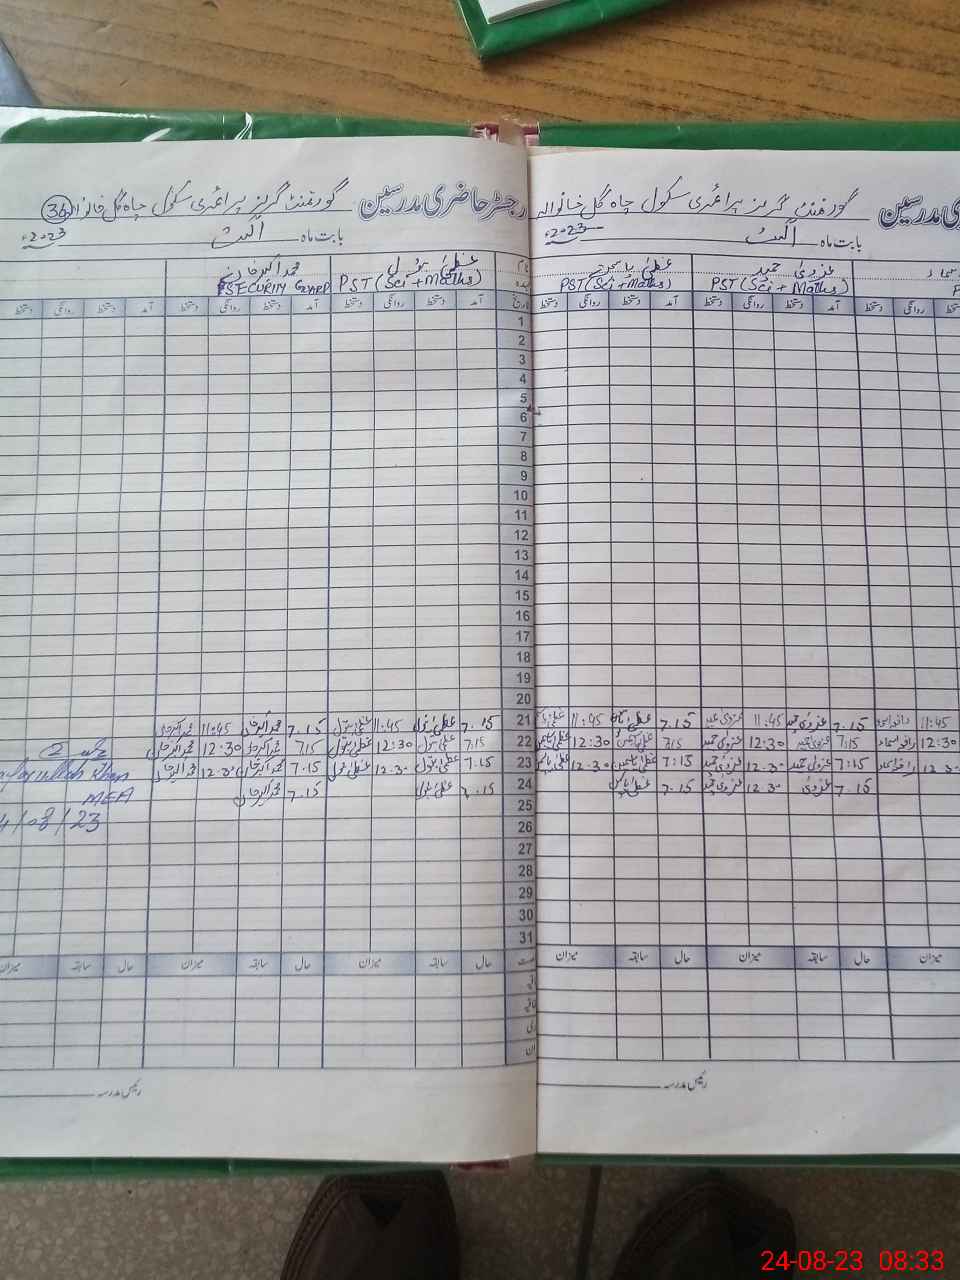 رجسٹر حاضری مدرسین گورنمنٹ گرلز پرائمری سکول چاہ گل خانوالہ 36
بابت ماہ اگست 2023ء
نام عظمیٰ بتول محمد اکبر خان
PST (Sci + Maths) SECURITY GUARD
آمد دستخط روانگی دستخط آمد دستخط روانگی دستخط آمد دستخط روانگی دستخط
ری مدرسین گورنمنٹ گرلز پرائمری سکول چاہ گل خانوالہ
بابت ماہ اگست 2023ء
عزویٰ حمید عظمیٰ یاسمین
PST (Sci + Maths) PST (Sci + Maths)
روانگی دستخط آمد دستخط روانگی دستخط آمد دستخط روانگی دستخط
1
2
3
4
5
6
7
8
9
10
11
12
13
14
15
16
17
18
19
20
21 7.15 عظمیٰ بتول 11:45 عظمیٰ بتول 7.15 محمد اکبر خان 11:45 محمد اکبر خان
22 7:15 عظمیٰ بتول 12:30 عظمیٰ بتول 7:15 محمد اکبر خان 12:30 محمد اکبر خان
23 7.15 عظمیٰ بتول 12.30 عظمیٰ بتول 7.15 محمد اکبر خان 12.30 محمد اکبر خان
24 7.15 عظمیٰ بتول 7.15 محمد اکبر خان
25
26
27
28
29
30
31
11:45 7.15 عزویٰ حمید 11:45 عزویٰ حمید 7.15 عظمیٰ یاسمین 11:45 عظمیٰ یاسمین
12:30 7:15 عزویٰ حمید 12:30 عزویٰ حمید 7:15 عظمیٰ یاسمین 12:30 عظمیٰ یاسمین
12.30 7:15 عزویٰ حمید 12.30 عزویٰ حمید 7:15 عظمیٰ یاسمین 12.30 عظمیٰ یاسمین
7.15 عزویٰ 12.30 عزویٰ حمید 7.15 عظمیٰ یاسمین
Khan
MEA
/08/23
حال سابقہ میزان حال سابقہ میزان حال سابقہ میزان
میزان حال سابقہ میزان حال سابقہ میزان
رئیس مدرسہ
رئیس مدرسہ
24-08-23 08:33